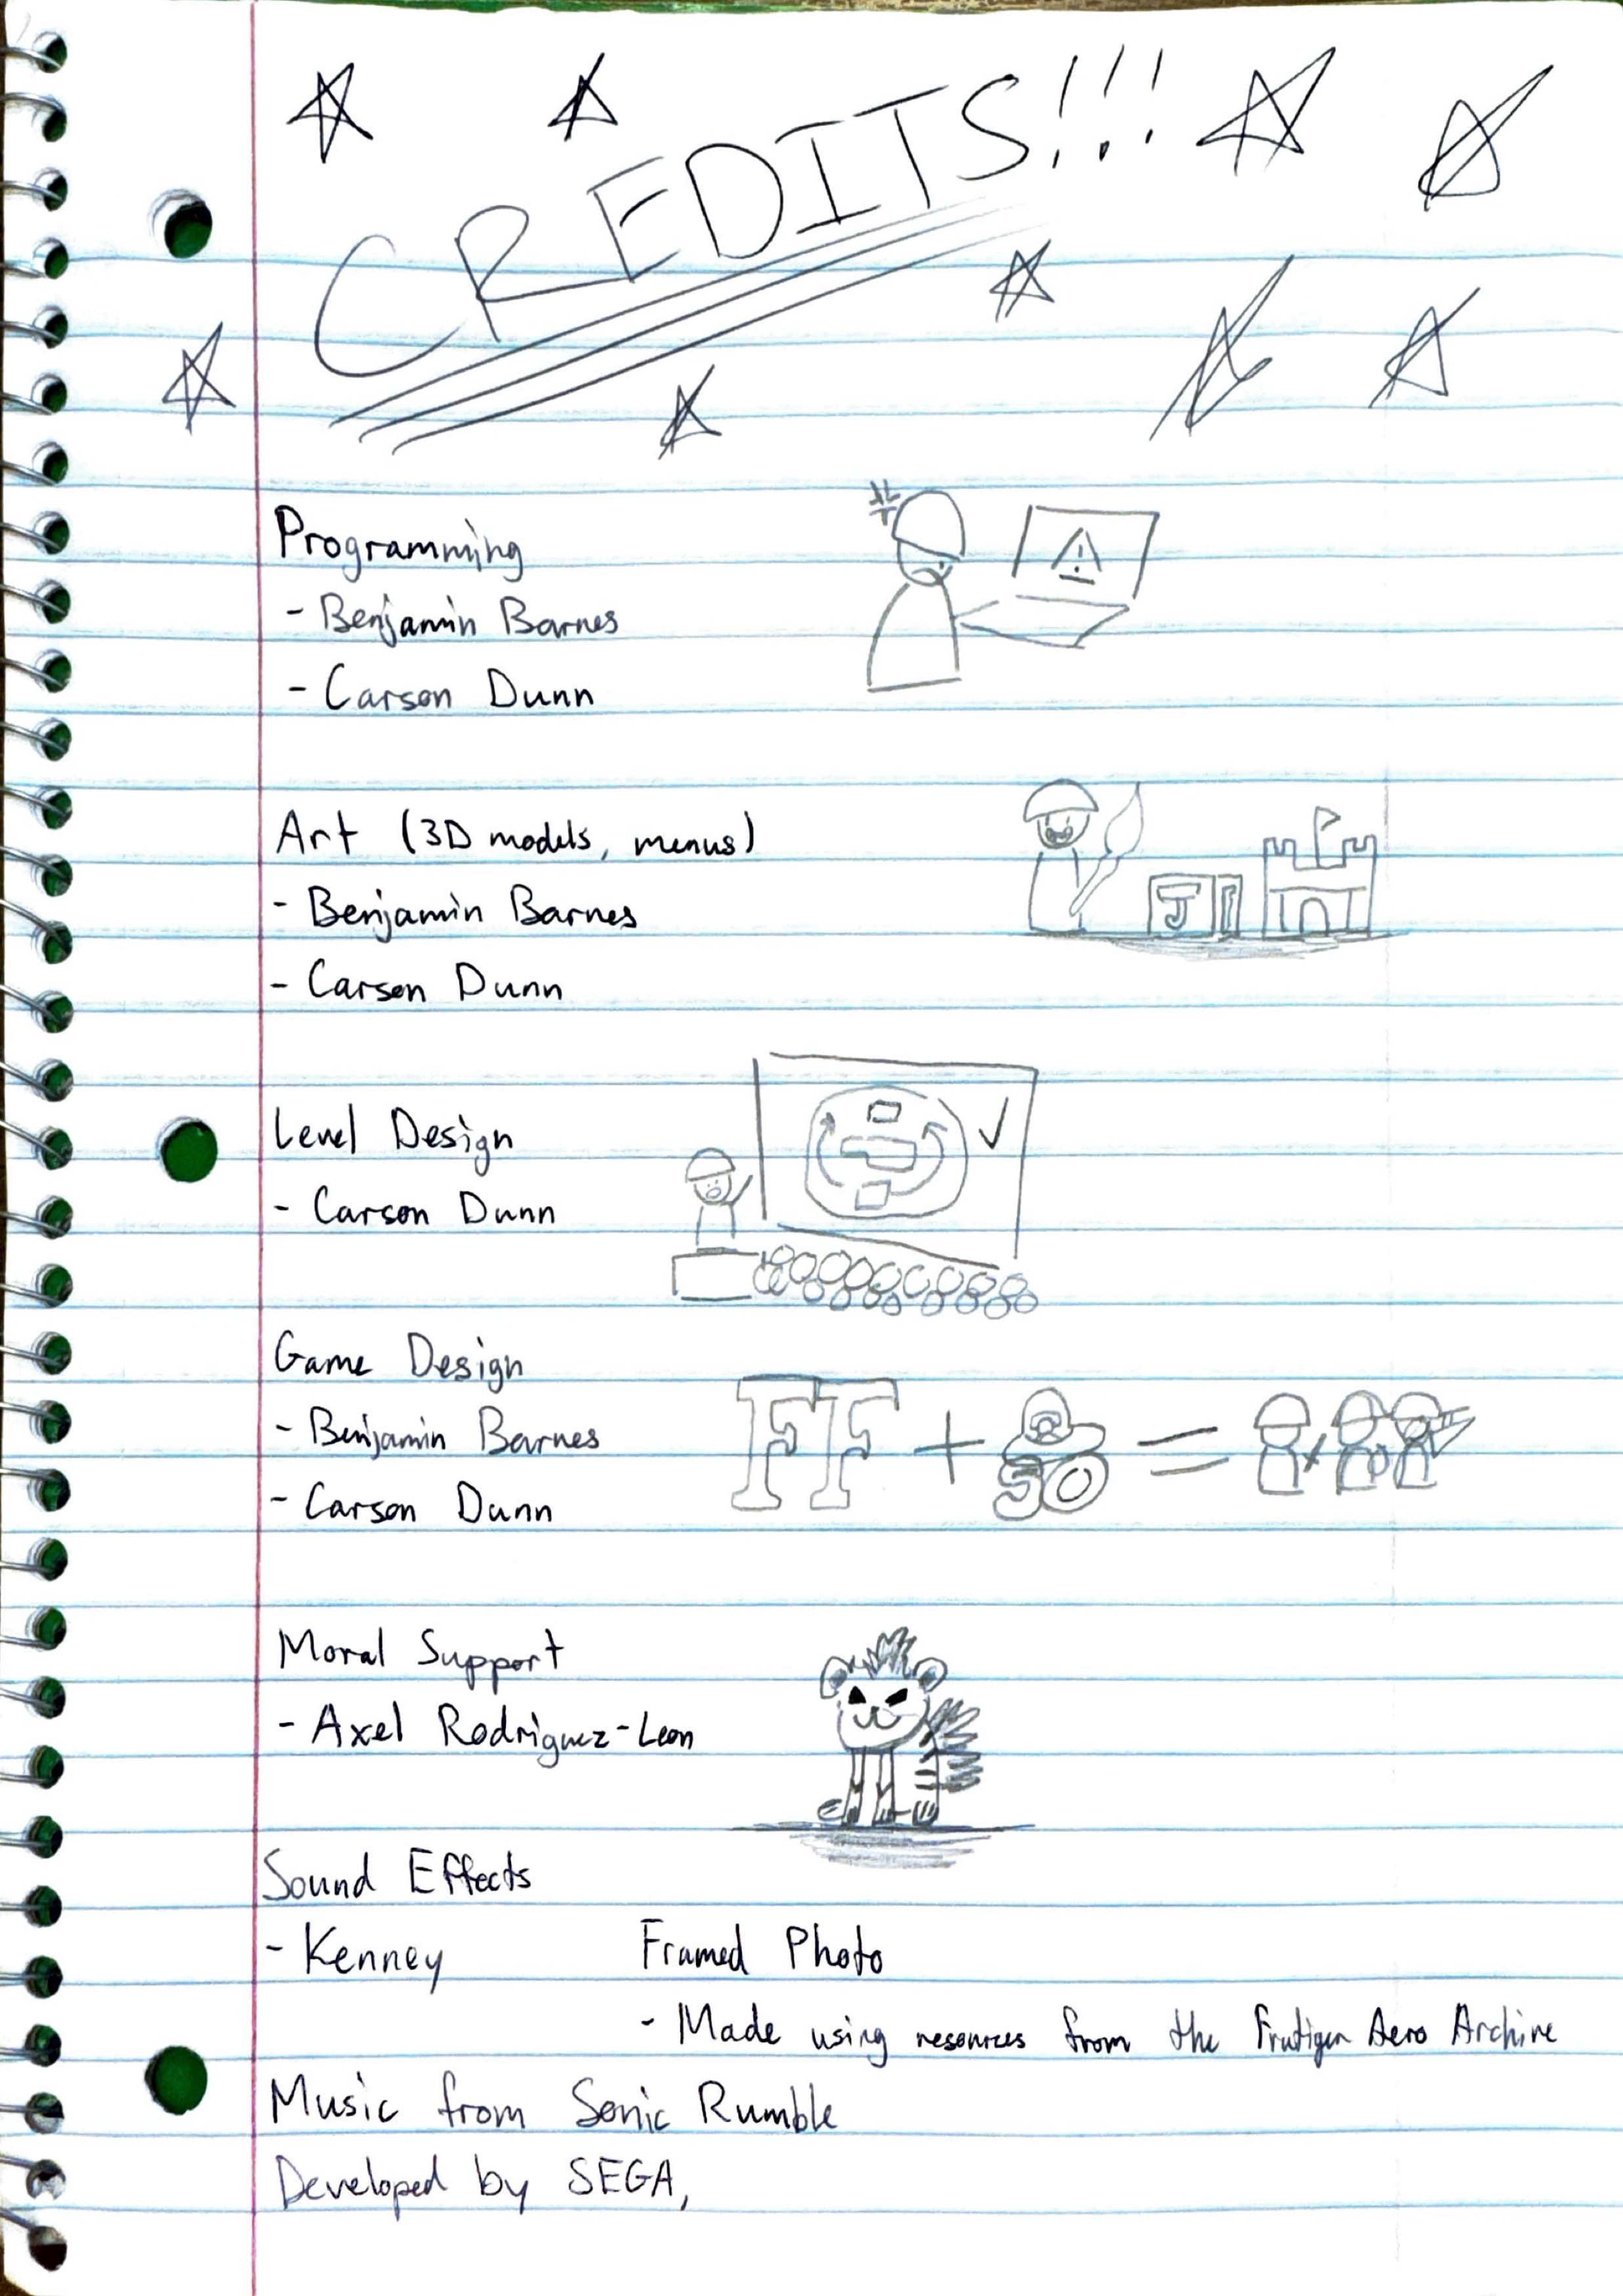 CREDITS!!!
Programming
- Benjamin Barnes
- Carson Dunn
Art (3D models, menus)
- Benjamin Barnes
- Carson Dunn
J
Level Design
- Carson Dunn
Game Design
- Benjamin Barnes
- Carson Dunn
FF + 50 =
Moral Support
- Axel Rodriguez-Leon
Sound Effects
- Kenney
Framed Photo
- Made using resources from the Frutiger Aero Archive
Music from Sonic Rumble
Developed by SEGA,